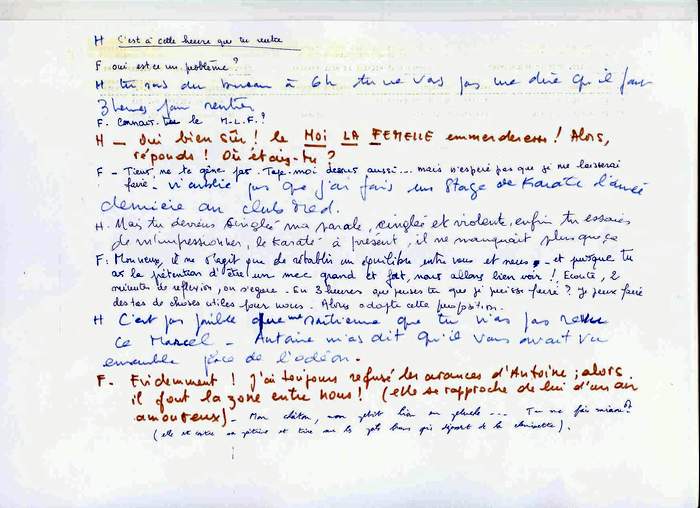 H C'est à cette heure que tu rentre
F. oui est ce un problème ?
H tu sors du bureau à 6h tu ne vas pas me dire qu'il faut
3 heures pour rentrer
F. Connais-tu le M-L-F. ?
H - Oui bien sûr ! le MOI LA FEMELLE emmerderesse ! Alors,
réponds ! Où étais-tu ?
F - Tiens, ne te gêne pas. Tape-moi dessus aussi... mais n'espère pas que je me laisserai
faire. n'oublie pas que j'ai fais un stage de Karaté l'année
dernière au club med.
H. Mais tu deviens singlée ma parole, singlée et violente, enfin tu essaies
de m'impressionner, le Karaté à présent, il ne manquait plus que ça
F: Monsieur, il ne s'agit que de rétablir un équilibre entre vous et nous, et puisque tu
as la prétention d'être un mec grand et fort, nous allons bien voir ! Ecoute, 2
minutes de réflexion, on s'égare. En 3 heures que penses tu que je puisse faire ? Je peux faire
des tas de choses utiles pour nous. Alors adopte cette proposition.
H C'est pas possible que tu n'as pas revu
ce Marcel - Antoine m'as dit qu'il vous avait vu
ensemble place de l'odéon.
F. Evidemment ! j'ai toujours refusé les avances d'Antoine ; alors
il fout la zone entre nous ! (elle se rapproche de lui d'un air
amoureux) - Mon chéton, mon petit en peluche... Tu me fais
(elle et tire sur les poils qui de la chemisette).